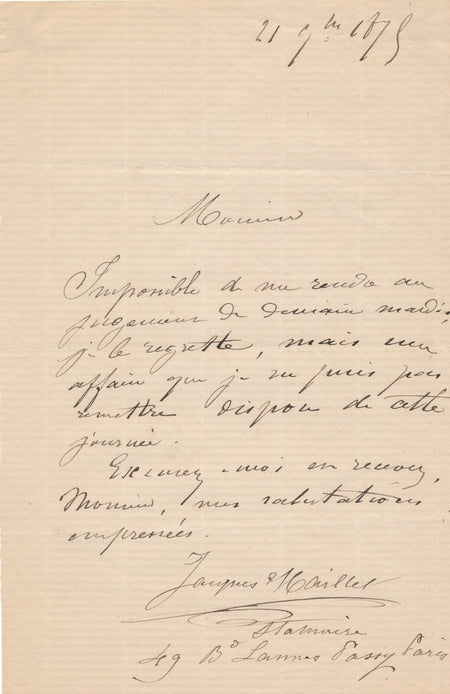 21 9bre 1875
Monsieur
Impossible de me rendre au
jugement de demain mardi,
je le regrette, mais une
affaire que je ne puis pas
remettre dispose de cette
journée.
Excusez-moi en recevez,
Monsieur, mes salutations
empressées.
Jacques Maillet
Statuaire
49 Bd Lannes Passy Paris